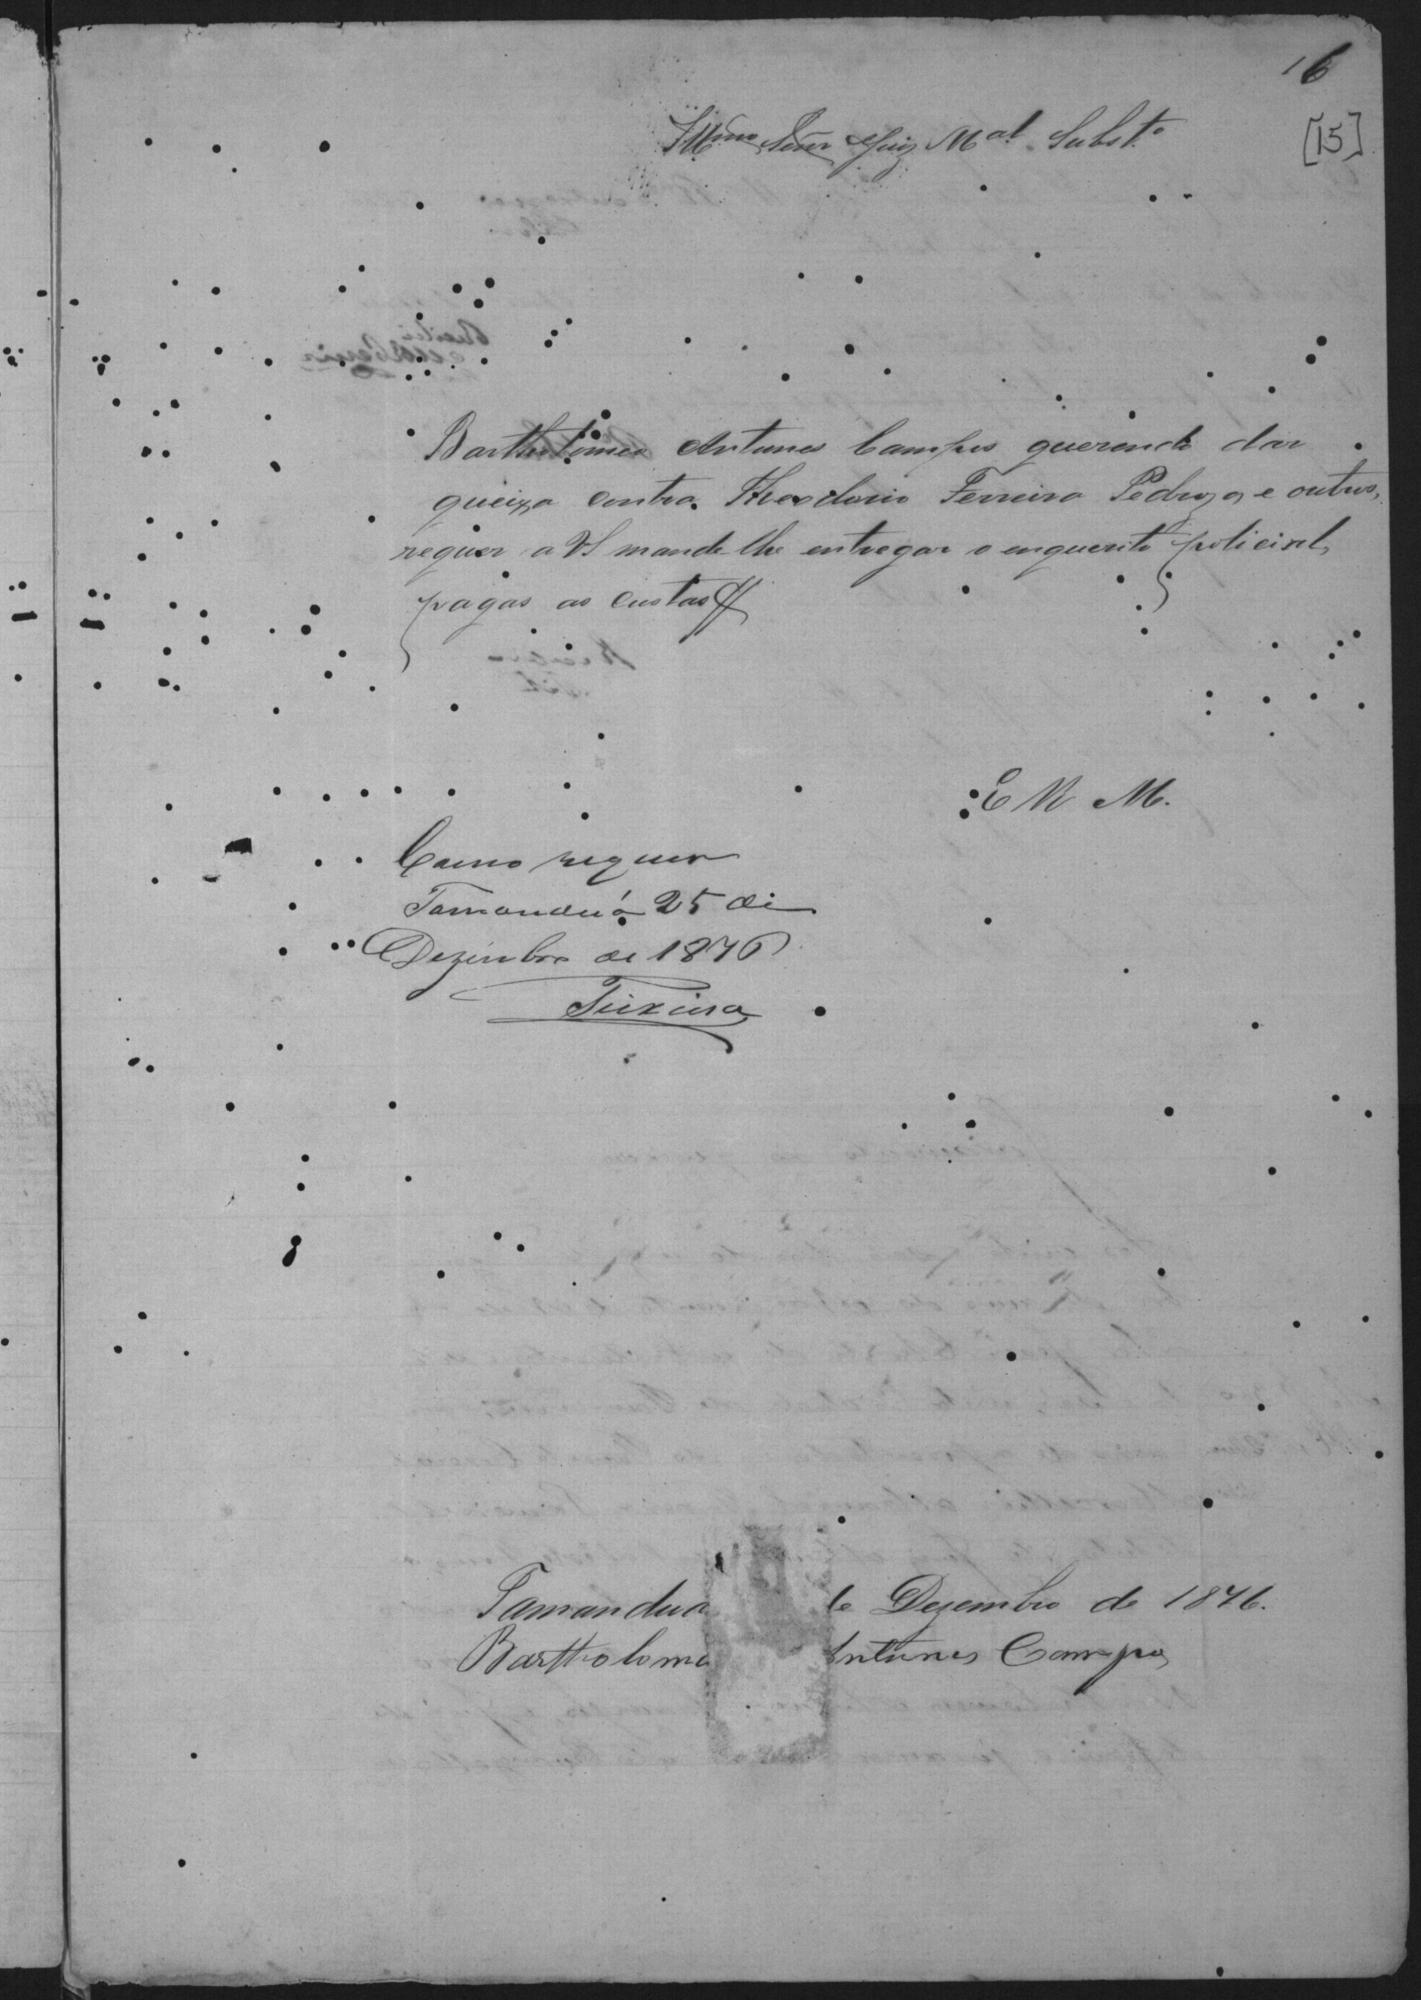 16
[15]
Illmo Snr Juiz Mal Substo
Bartholomeo Antunes Campos querendo dar
queixa contra Theodorio Ferreira Pedroza e outros,
requer a VS mande lhe entregar o enquerito policial,
pagas as custas
E R M.
Como requer
Tamanduá 25 de
Dezembro de 1876
Teixeira
Tamandua de Dezembro de 1876.
Bartholome Antunes Campos